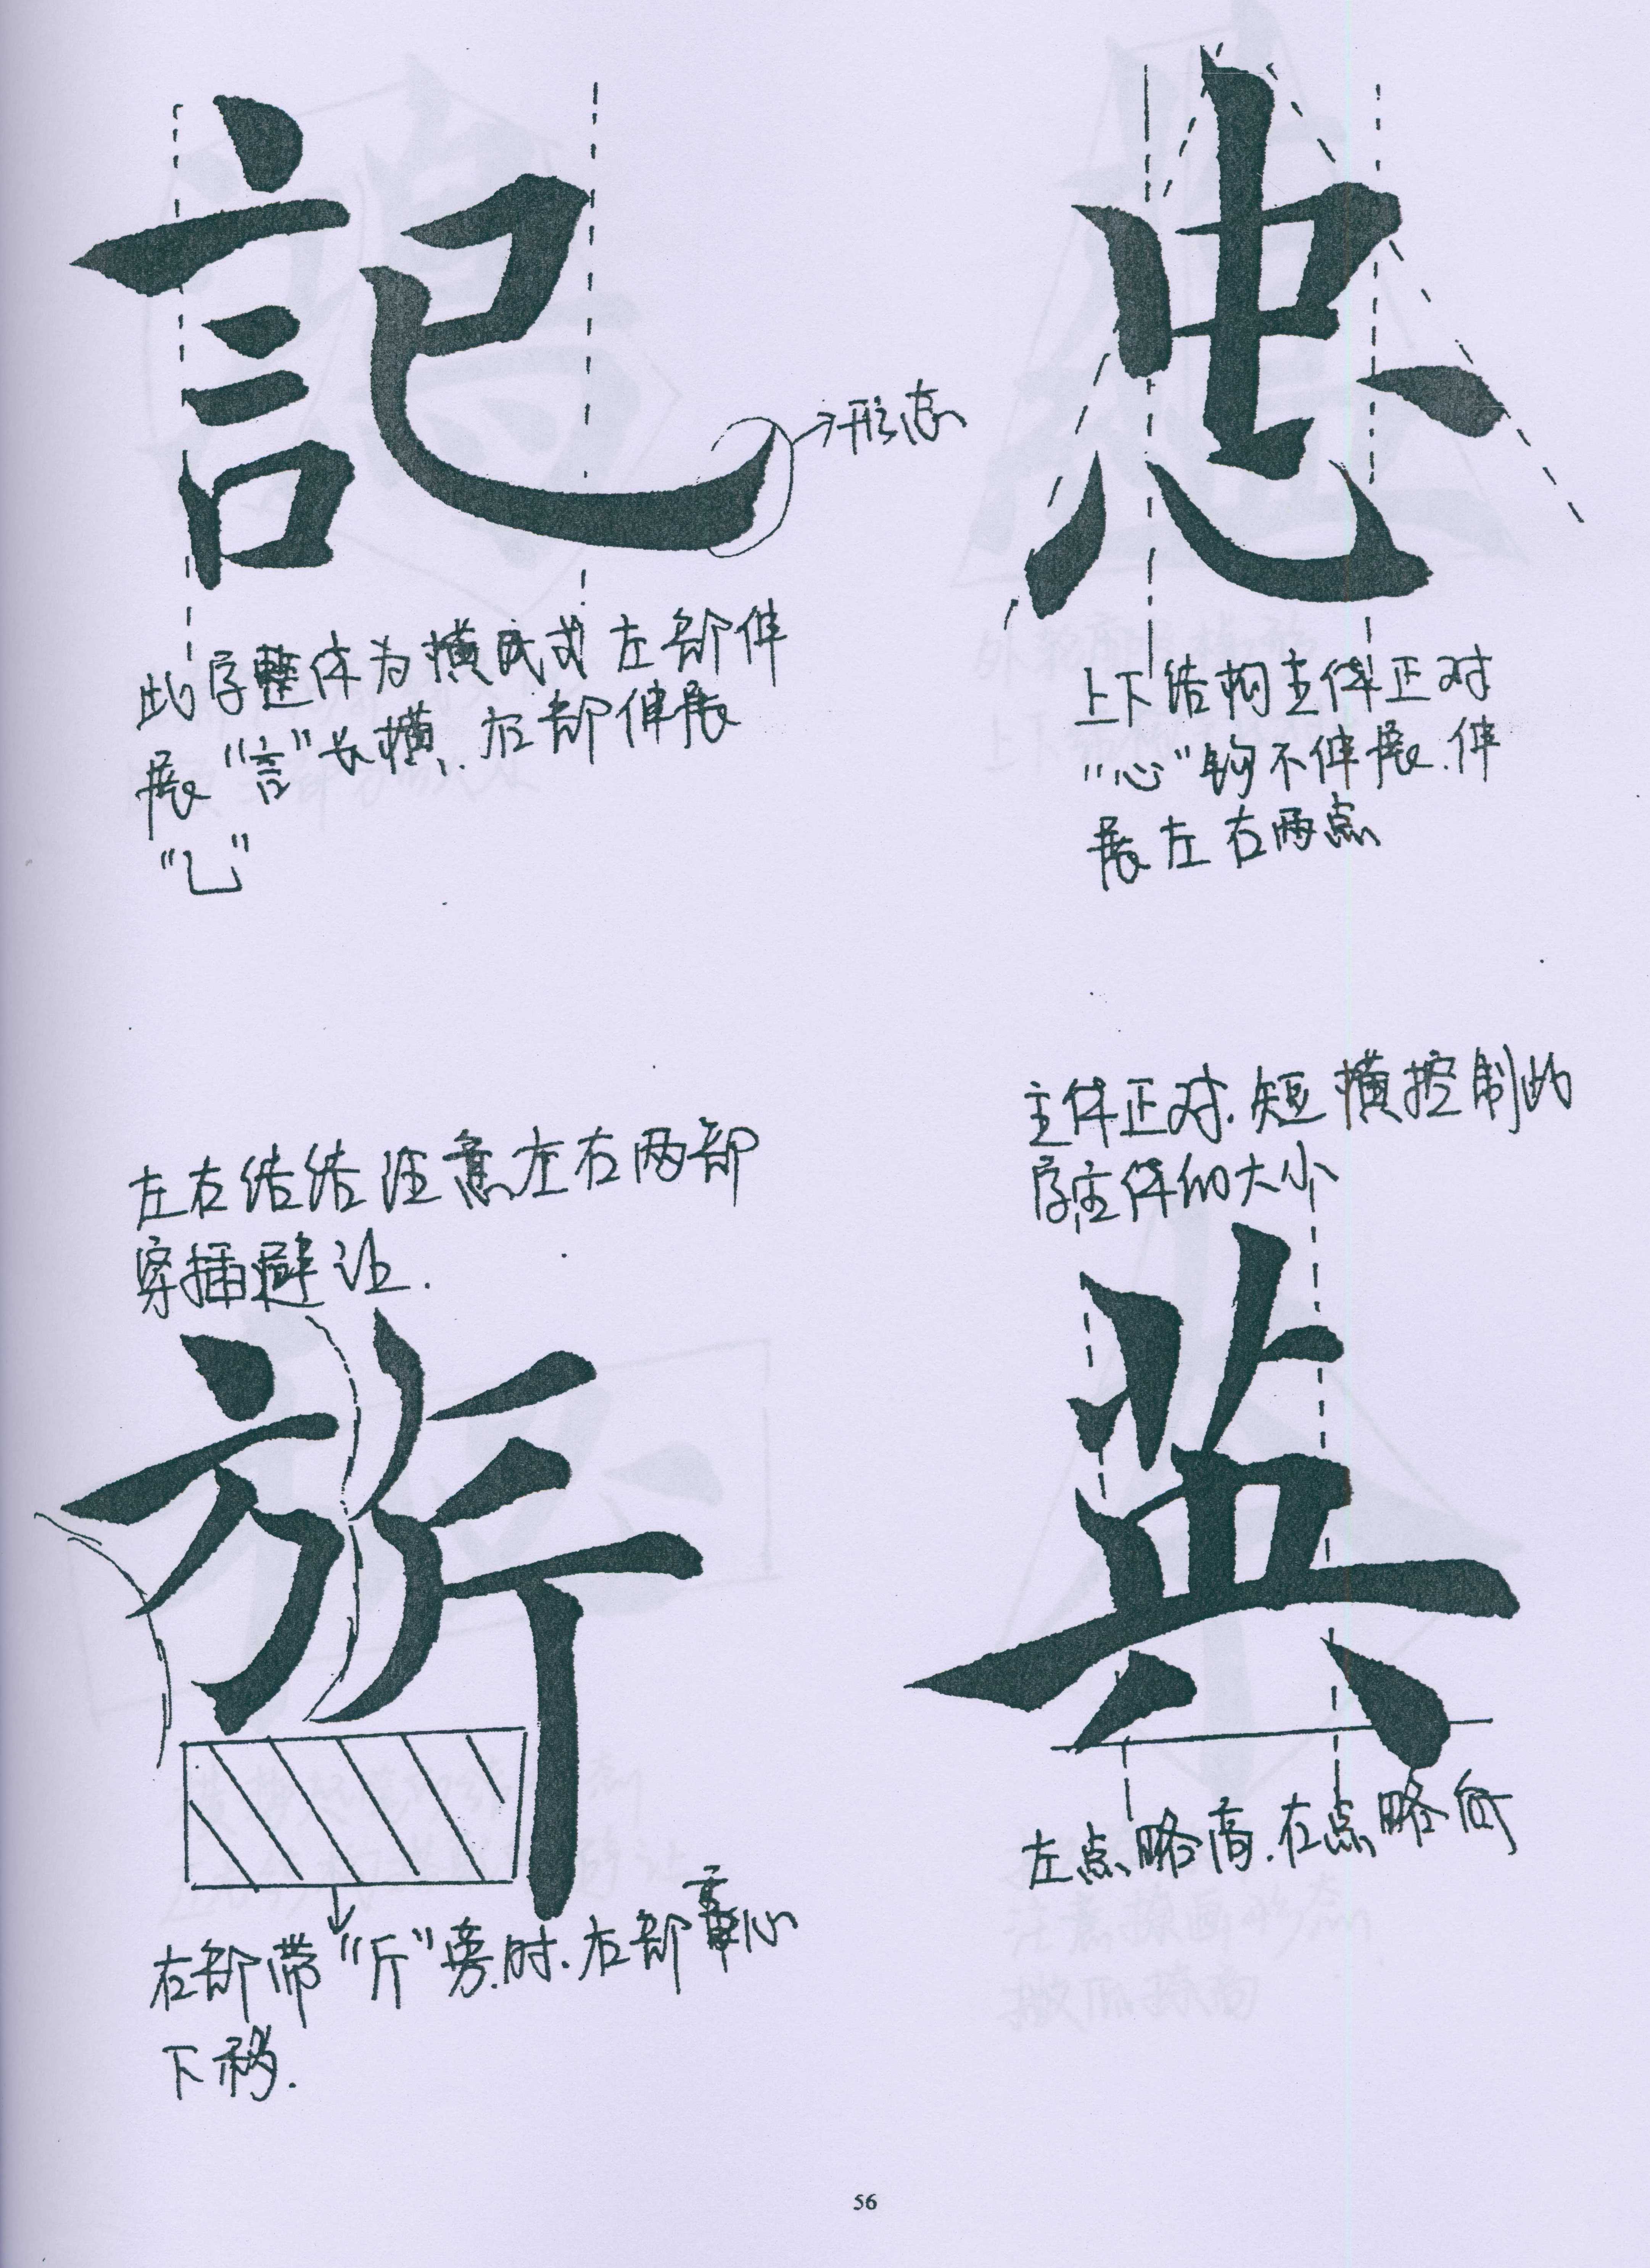 記
→形态
此字整体为横民式左部伸
展“言”长横.右部伸展
“乚”
忠
上下结构主体正对
“心”钩不伸展.伸
展左右两点
左右结结注意左右两部
穿插避让.
旂
右部带“斤”旁时.右部重心
下移.
主体正对.短横控制此
字主体的大小
左点略高.右点略低
56